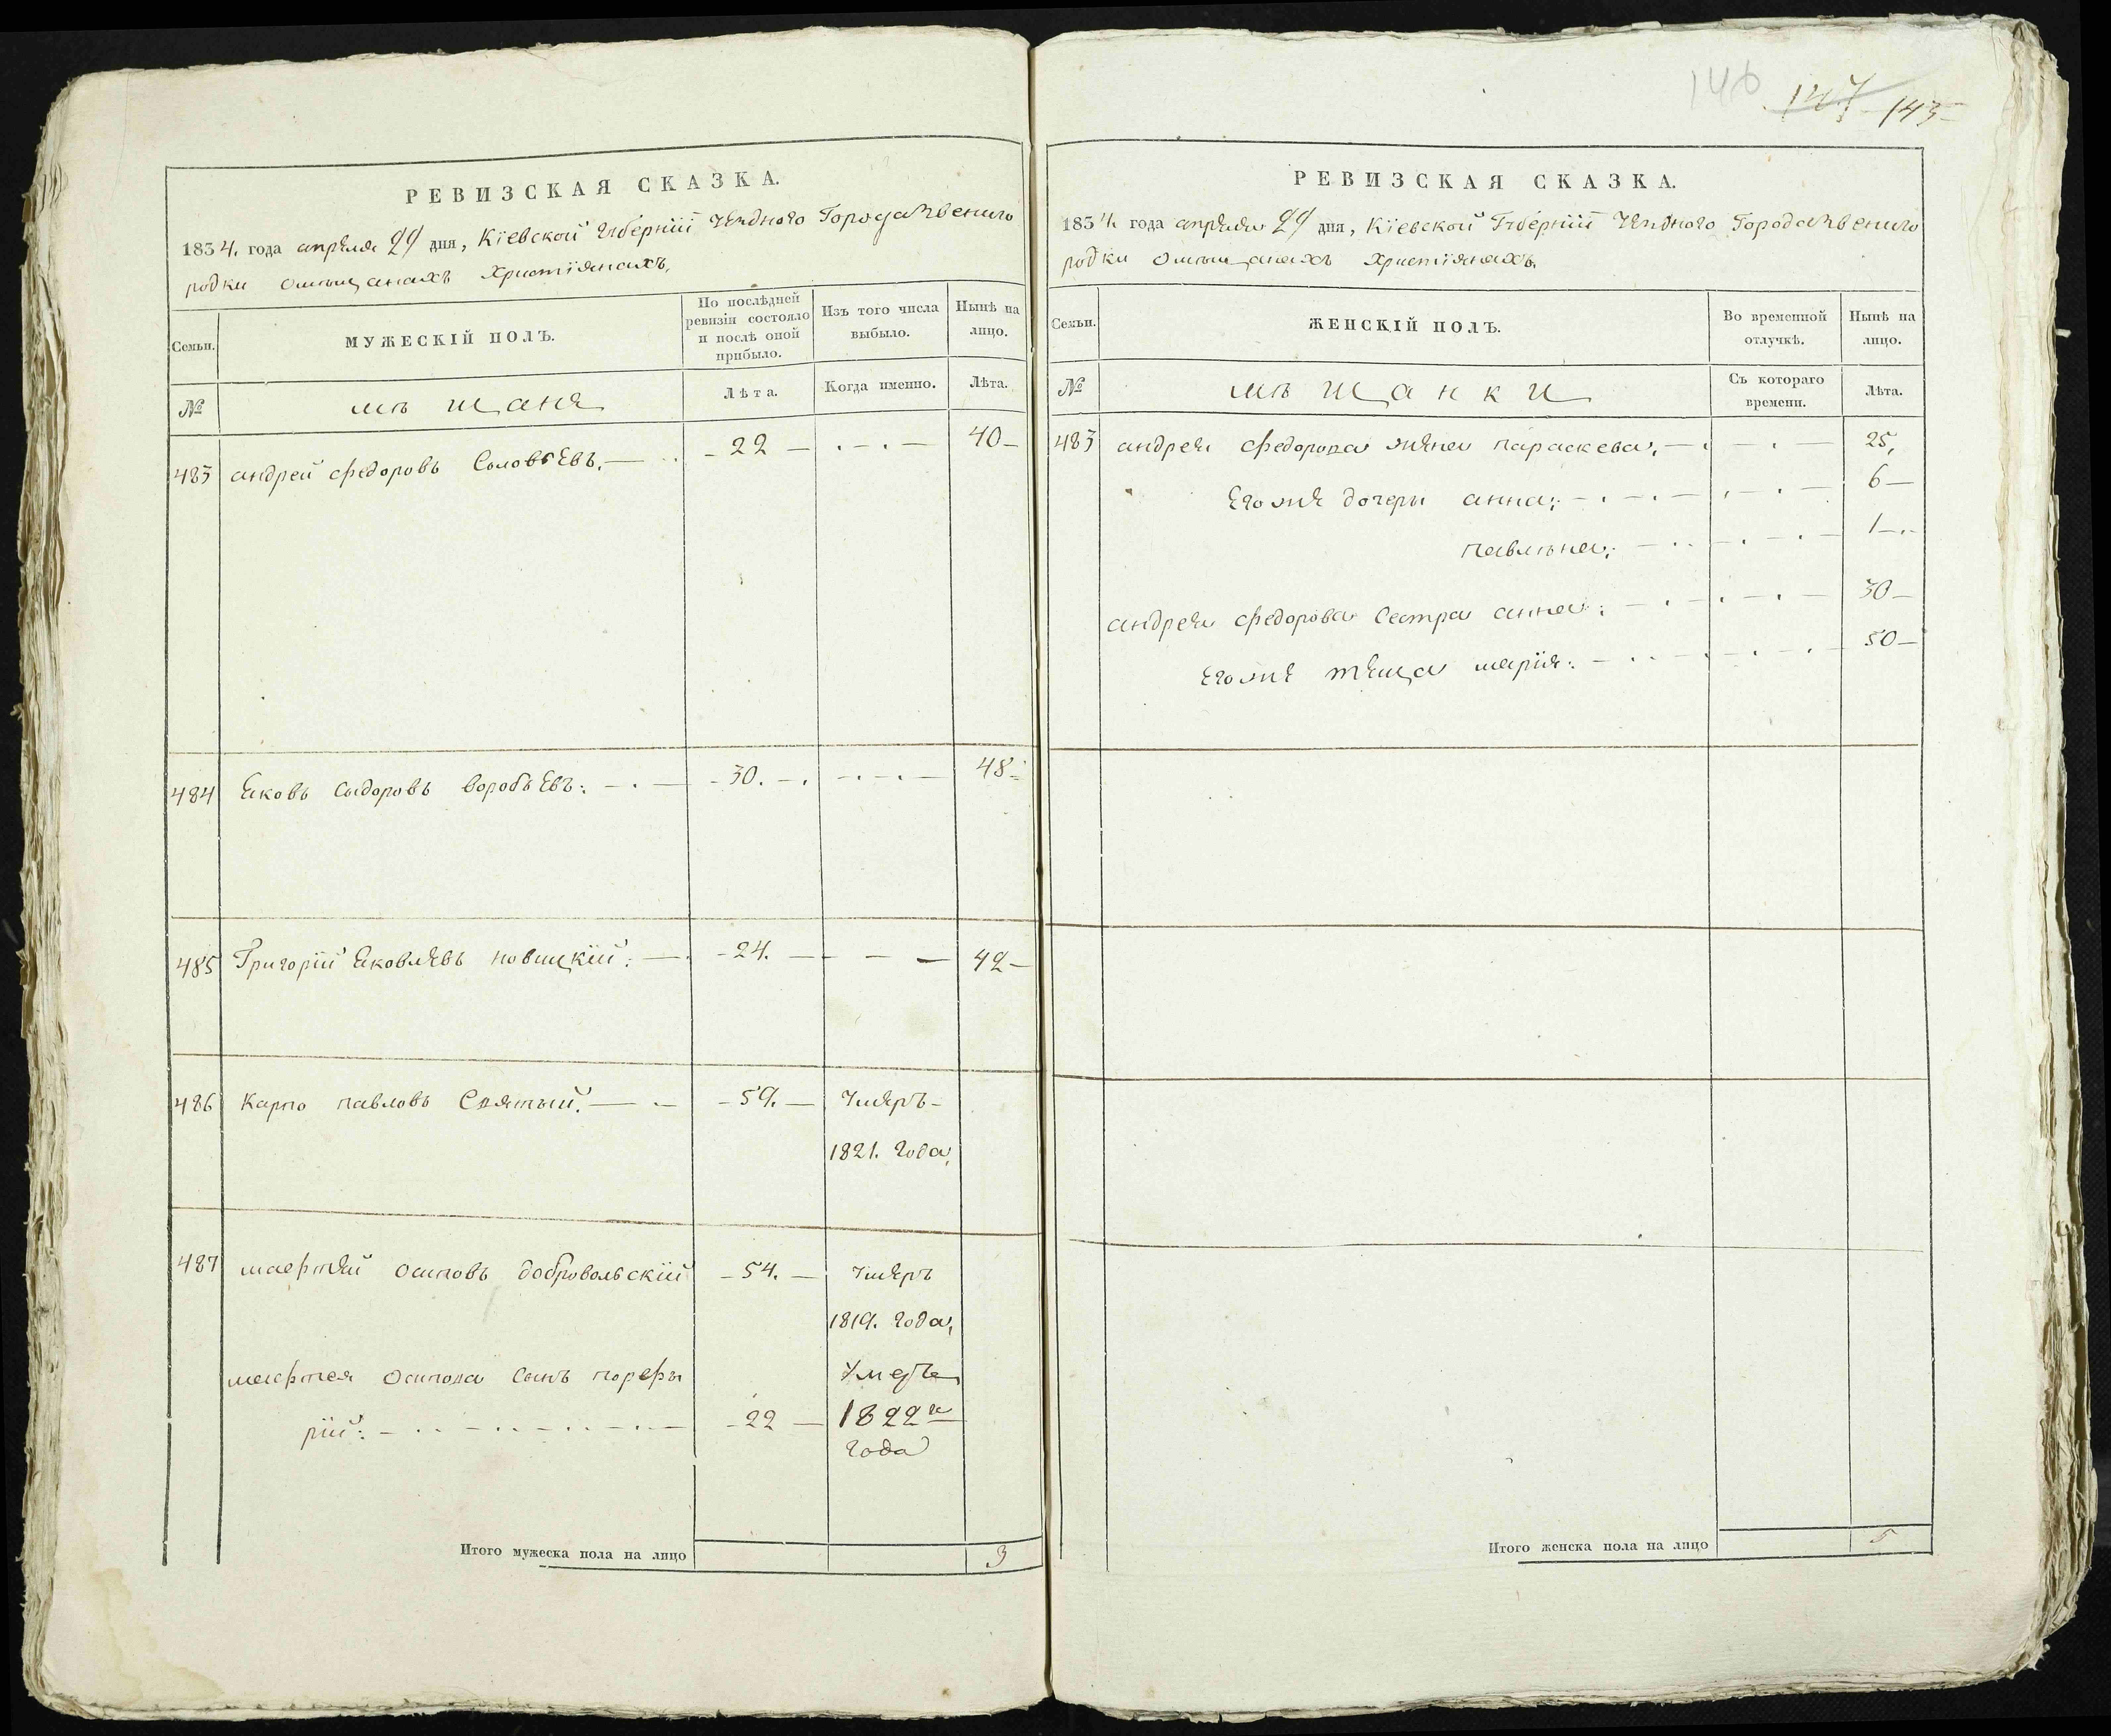 РЕВИЗСКАЯ СКАЗКА.
1834. года апреля 29 дня, Кіевской Губерніи Уезднаго Города Звениго
родки Омещанахъ Христіянахъ,
Семьи.
МУЖЕСКІЙ ПОЛЪ.
По послѣдней ревизіи состояло и послѣ оной прибыло.
Изъ того числа выбыло.
Нынѣ на лицо.
№
мещане
Лѣта.
Когда именно.
Лѣта.
483 андрей федоровъ Соловьевъ. — 22 — 40 —
484 Яковъ Сыдоровъ воробьевъ: — 30. — 48
485 Григорій Яковлевъ новицкій: — 24. — 42 —
486 Карпо павловъ Святый. — 59. — Умеръ —
1821. года,
487 матфей осиповъ добровольскій — 54. — Умеръ
1819. года,
матфея осипова сынъ порфи
рій: — 22 — Умеръ
1822 го
года
Итого мужеска пола на лицо 3
146 147 143
РЕВИЗСКАЯ СКАЗКА.
1834. года апреля 29 дня, Кіевской Губерніи Уезднаго Города Звениго
родки Омещанахъ Христіянахъ.
Семьи.
ЖЕНСКІЙ ПОЛЪ.
Во временной отлучкѣ.
Нынѣ на лицо.
№
мещанки
Съ котораго времени.
Лѣта.
483 андрея федорова жена параскева, — 25,
Егоже дочери анна: — 6 —
павлина: — 1 —
андрея федорова сестра анна: — 30 —
Егоже теща марія: — 50 —
Итого женска пола на лицо 5